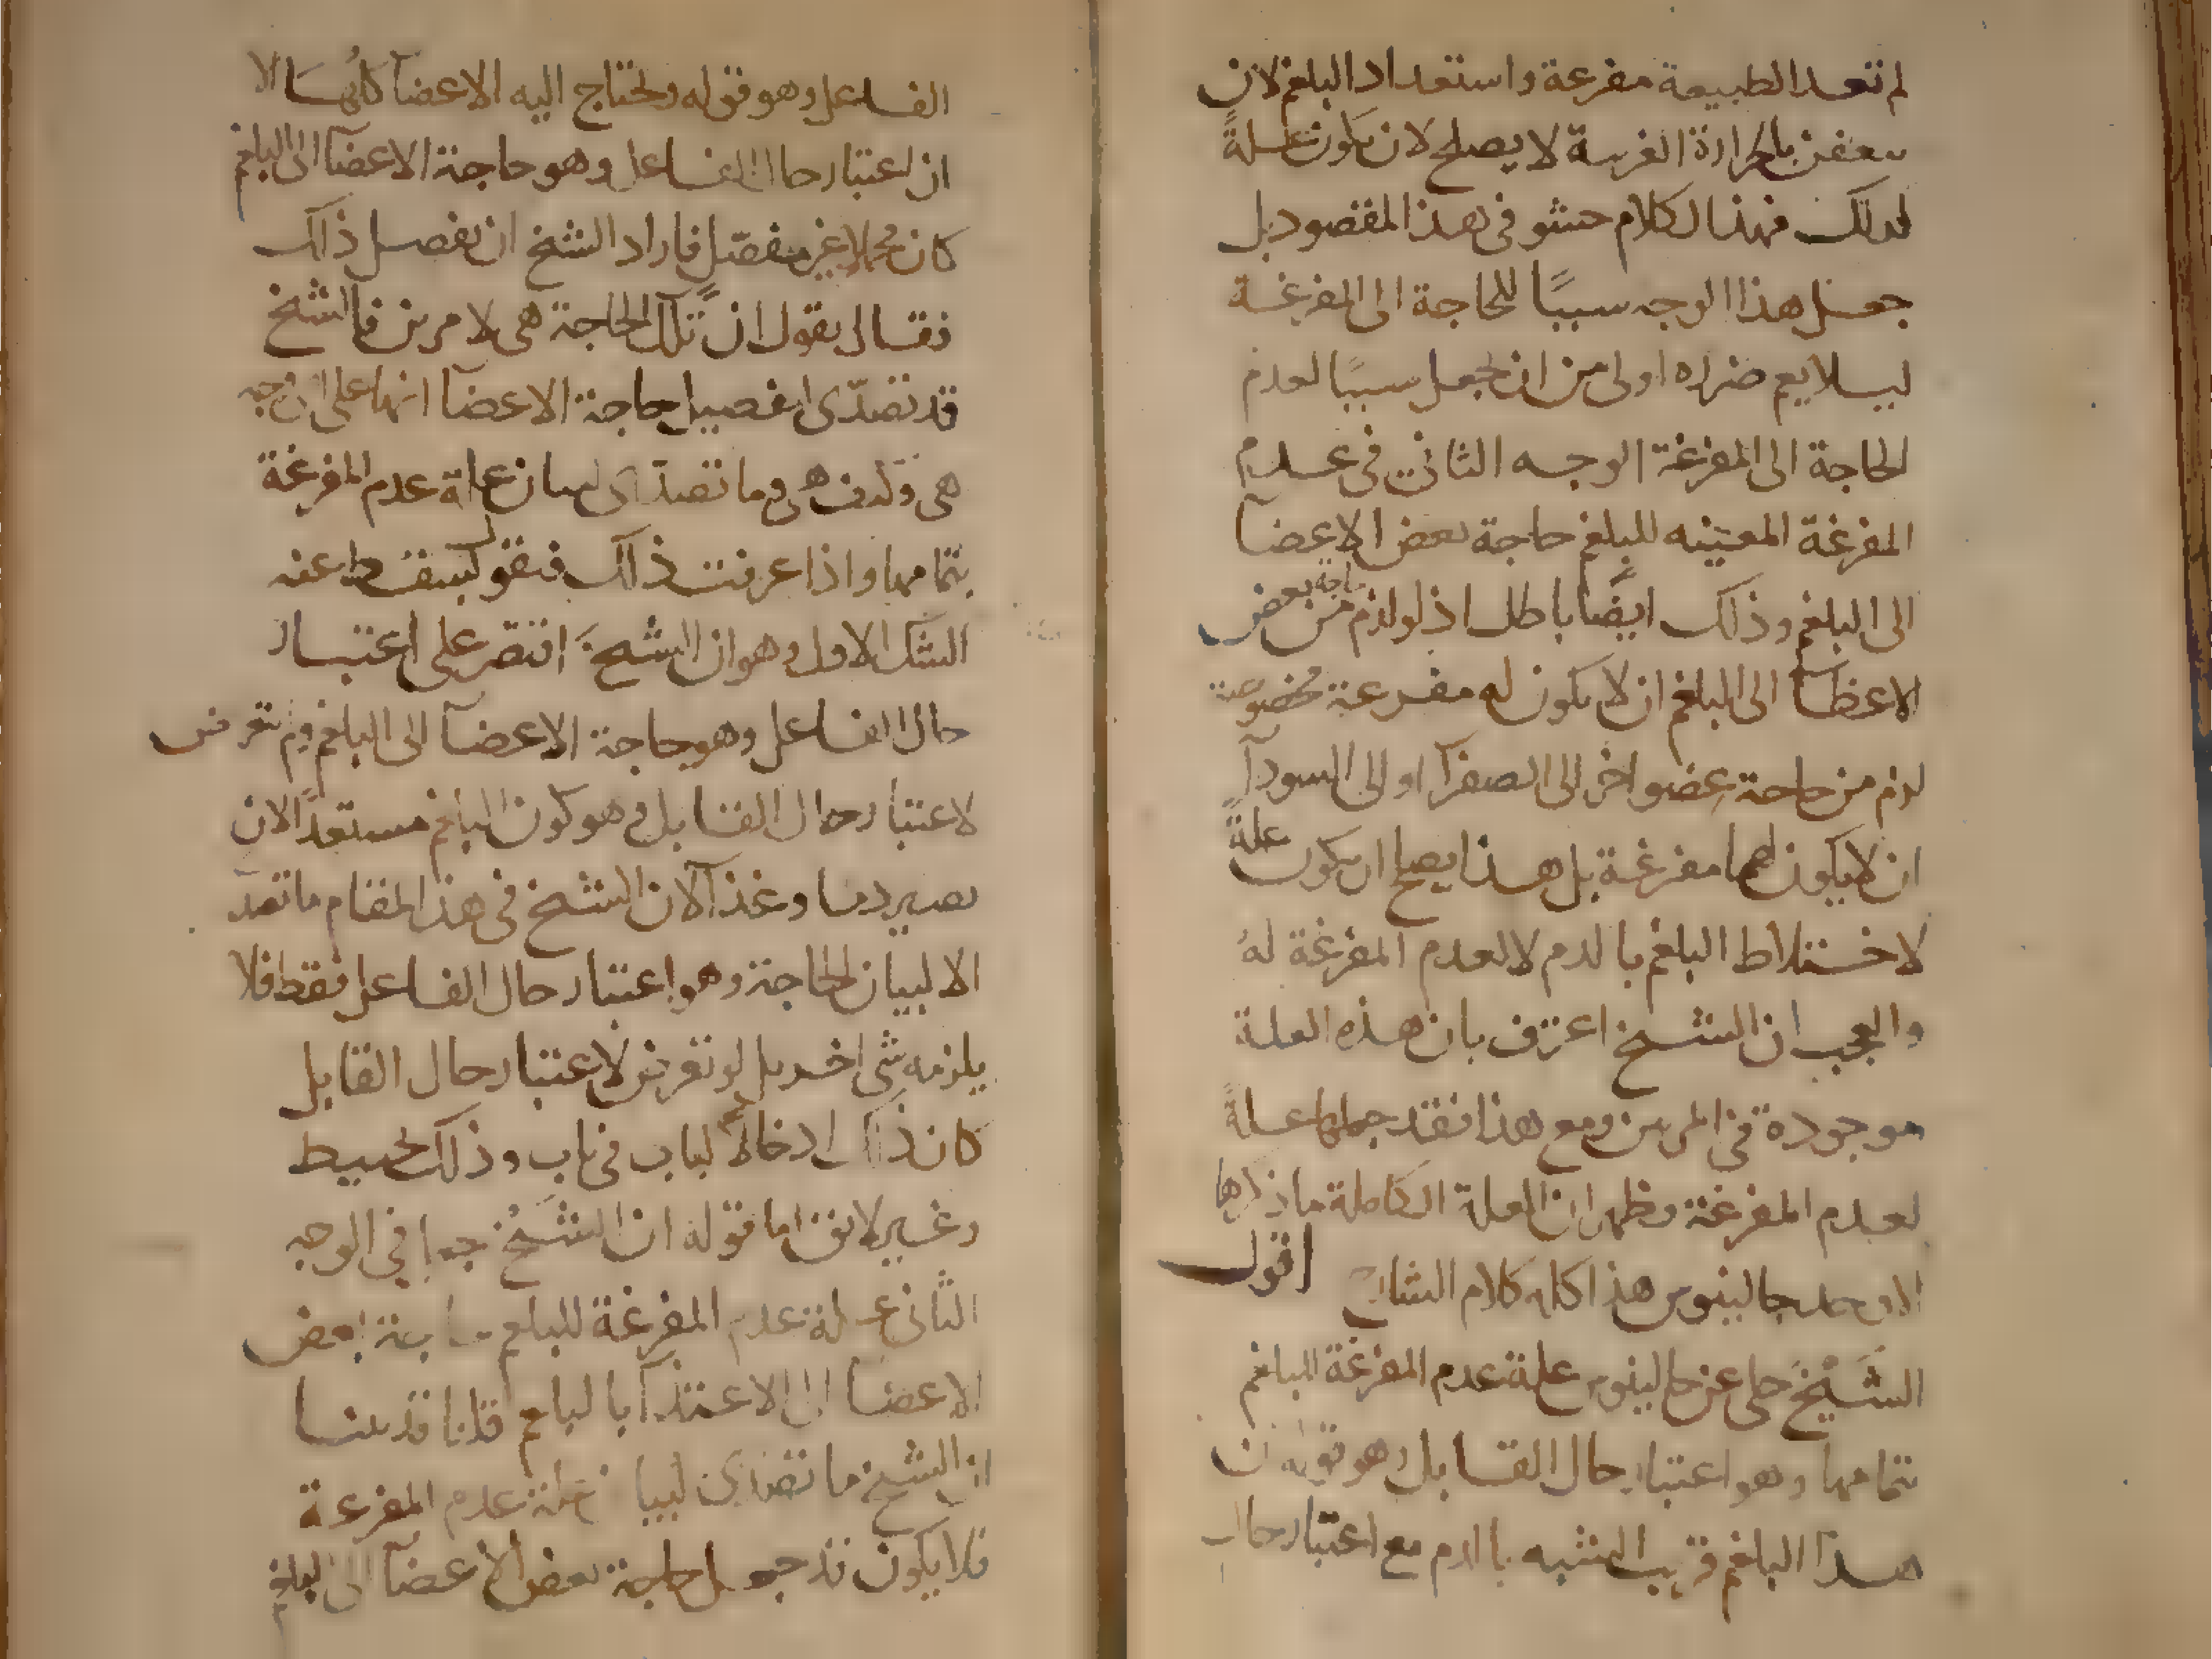 لم تعد الطبيعة مفرغة واستعداد البلغم لان
يتعفن بالحرارة الغريبة لا يصلح لان يكون علةً
لذلك فهذا الكلام حشو في هذا المقصود بل
جعل هذا الوجه سببًا للحاجة الى المفرغة
ليلا يعم ضرره اولى من ان يجعل سببًا لعدم
الحاجة الى المفرغة الوجه الثاني في عدم
المفرغة المعينه للبلغم حاجة بعض الاعضآ
الى البلغم وذلك ايضًا باطل اذ لو لزم من حاجة بعض
الاعظآ الى البلغم ان لا يكون له مفرغة مخصوصة
لزم من حاجة عضو اخر الى الصفرآ او الى السودآ
ان لا يكون لهما مفرغة بل هذا يصلح ان يكون علةً
لاختلاط البلغم بالدم لا لعدم المفرغة لهُ
والعجب ان الشيخ اعترف بان هذه العلة
موجودة في المرتين ومع هذا فقد جعلها علةً
لعدم المفرغة وظهر ان العلة الكاملة ما ذكرها
الاوحد جالينوس هذا كله كلام الشارح اقول
الشَيْخ حكى عن جالينوس علة عدم المفرغة للبلغم
بتمامها وهو اعتبار حال القابل وهو قوله ان
هذا البلغم قريب الشبه بالدم مع اعتبار حال
الفاعل وهو قوله ويحتاج اليه الاعضآ كلُهَا الا
ان اعتبار حال الفاعل وهو حاجة الاعضآ الى البلغم
كان مجملا غير مفصّل فاراد الشيخ ان يفصل ذلك
فقال بقول ان تلك الحاجة هي لامرين فالشيخ
قد تصدّى لتفصيل حاجة الاعضآ انها على اي وجه
هي وكيف هي وما تصدّى لبيان علة عدم المفرغة
بتمامها واذا عرفت ذلك فنقول سقط عنه
الشك الاول وهو ان الشيخ اقتصر على اعتبار
حال الفاعل وهو حاجة الاعضآ الى البلغم ولم يتعرض
لاعتبار حال القابل وهو كون البلغم مستعدًا لان
يصير دما وغذآ لان الشيخ في هذا المقام ما تصدّ
الا لبيان الحاجة وهو اعتبار حال الفاعل فقط فلا
يلزمه شي اخر بل لو تعرض لاعتبار حال القابل
كان ذلك ادخالا لباب في باب وذلك تخبيط
وغير لايق اما قوله ان الشَيْخ جعل في الوجه
الثاني علة عدم المفرغة للبلغم حاجة بعض
الاعضآ الى الاغتذآ بالبلغم قلنا قد بينا
ان الشيخ ما تصدى لبيان علة عدم المفرغة
فلا يكون قد جعل حاجة بعض الاعضآ الى البلغم